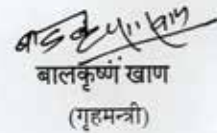 बालकृष्ण खाण
(गृहमन्त्री)